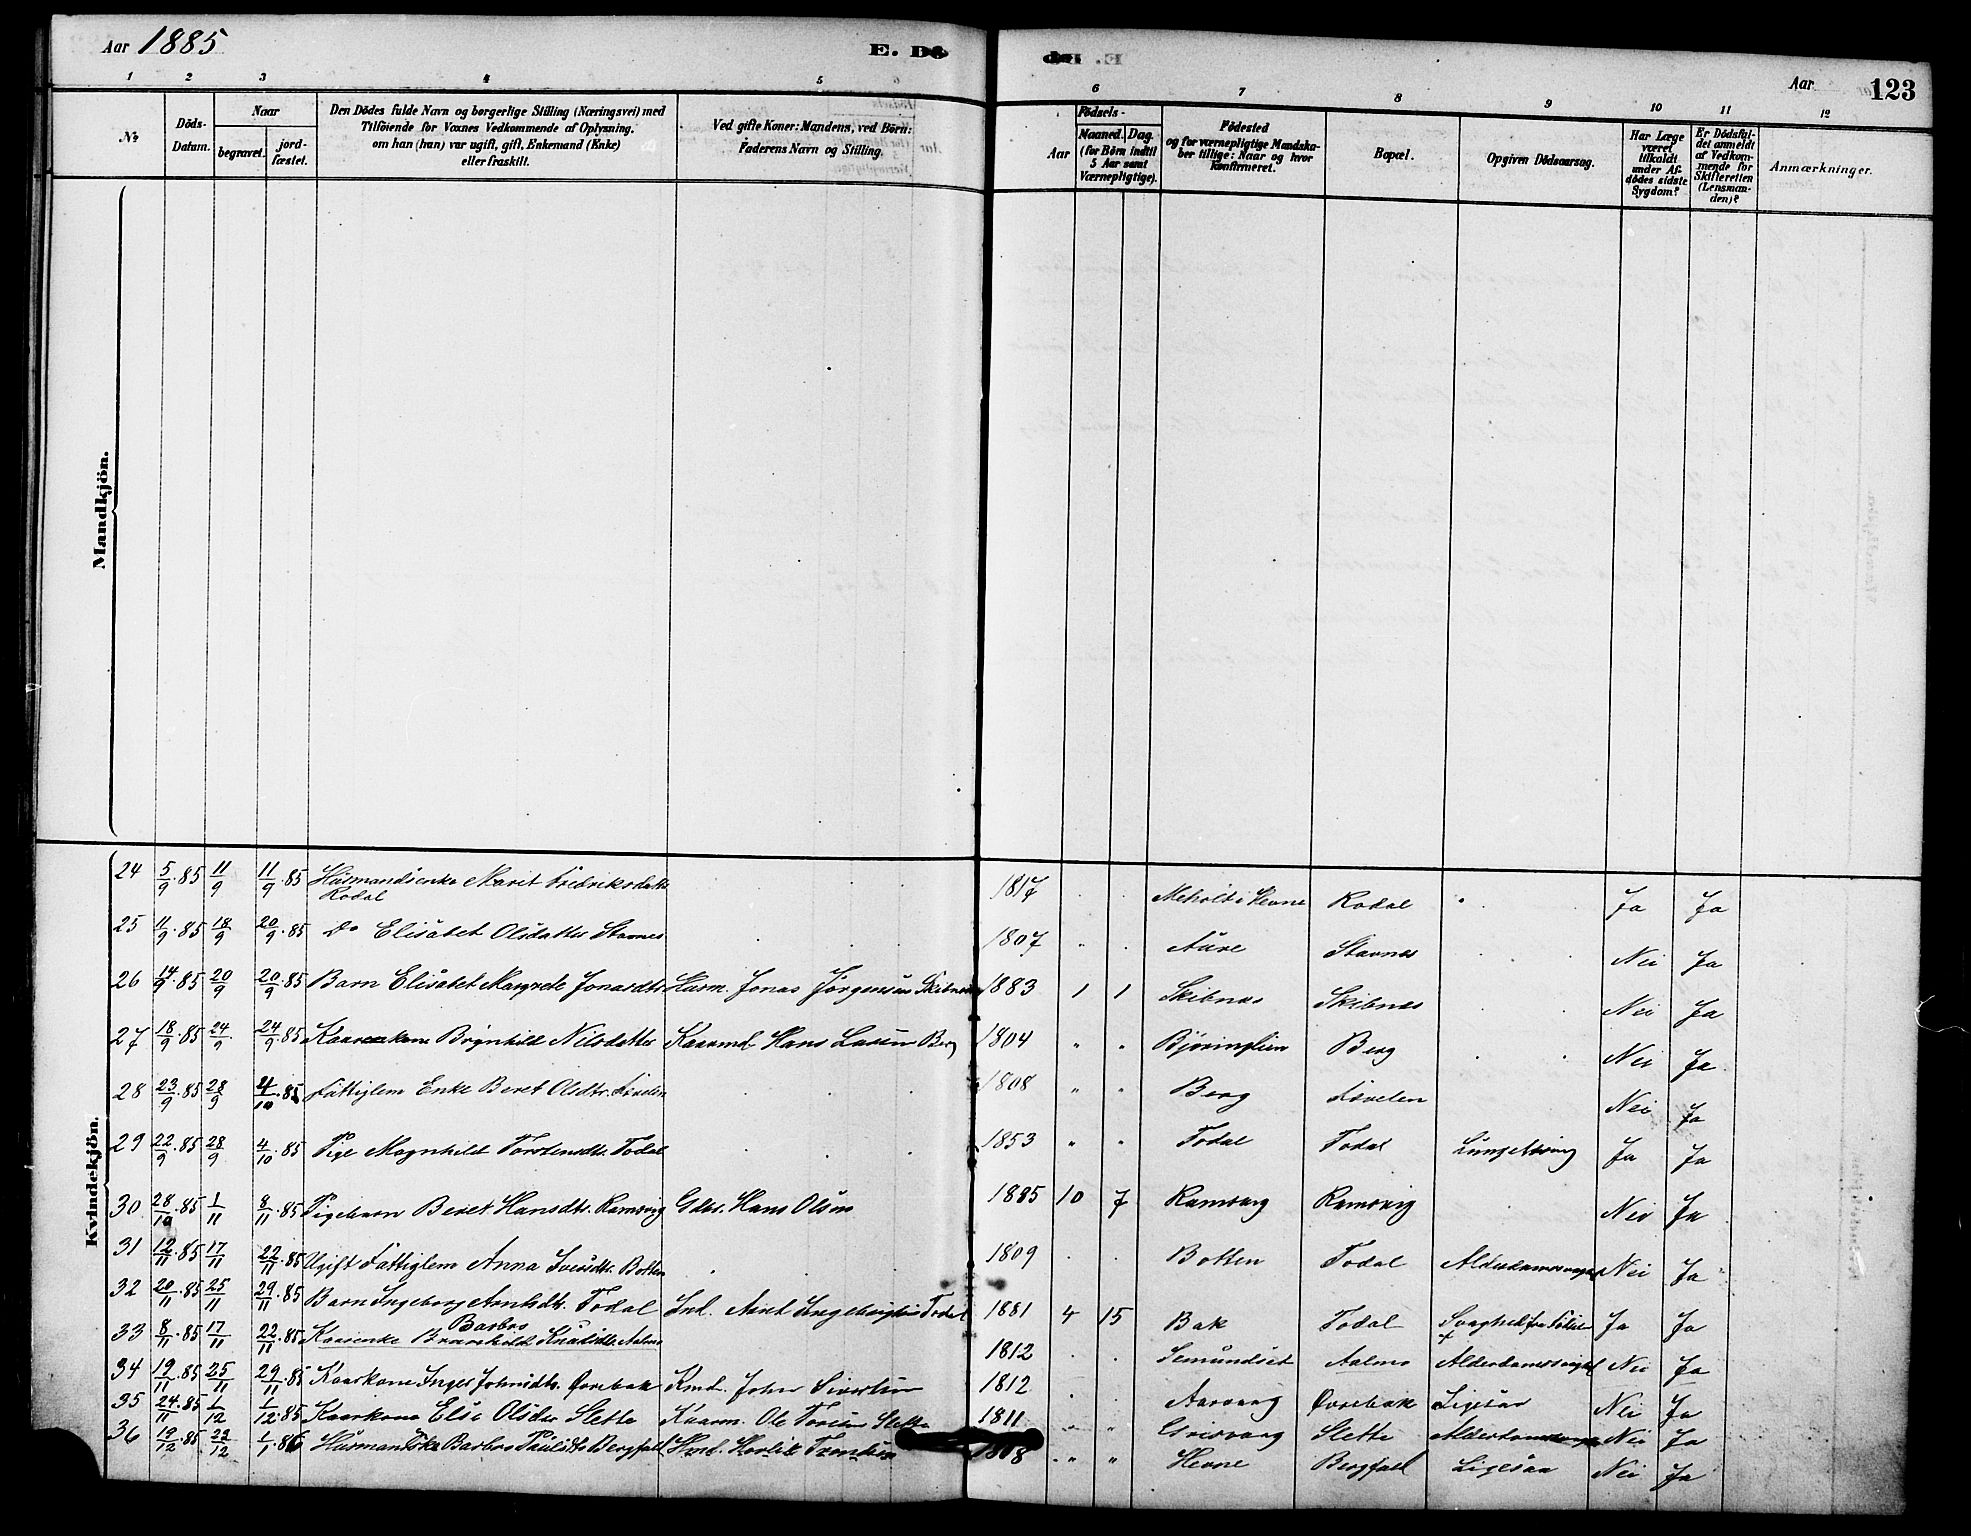 Aar 1885
E. Dö
E. Dö
Aar
123
1 2 3 4 5 6 7 8 9 10 11 12
№
Döds-Datum.
Naar
begravet.
jord-fæstet.
Den Dödes fulde Navn og borgerlige Stilling (Næringsvei) med
Tilföiende for Voxnes Vedkommende af Oplysning.
om han (hun) var ugift, gift, Enkemand (Enke)
eller fraskilt.
Ved gifte Koner: Mandens, ved Börn:
Faderens Navn og Stilling.
Födsels-
Aar
Maaned. Dag.
(for Börn indtil
5 Aar samt
Værnepligtige).
Födested
og for værnepligtige Mandska-
ber tillige: Naar og hvor
Konfirmeret.
Bopæl.
Opgiven Dödsaarsag.
Har Læge
været
tilkaldt
under Af-
dödes sidste
Sygdom?
Er Dödsfal-
det anmeldt
af Vedkom-
mende for
Skifteretten
(Lensman-
den)?
Anmærkninger.
Mandkjön.
Kvindekjön.
24 5/9.85 11/9 11/9.85 Husmandsenke Marit Fredriksdatter Rodal 1817 Hevne Rodal Ja Ja
25 11/9.85 18/9 20/9.85 Do Elisabet Olsdatter Stavnes 1807 " . Aure Stavnes Nei Ja
26 14/9.85 20/9 20/9.85 Barn Elisabet Margrete Jonasdtr Husm. Jonas Jørgensen Skibnes 1883 1 1 Skibnes Skibnes Nei Ja
27 18/9.85 24/9 24/9.85 Kaarkone Brynhild Nilsdatter Kaarmd. Hans Larsen Berg 1804 " " Berg Nei Ja
28 23/9.85 28/9 4/10.85 Fattiglem Enke Beret Olsdtr. 1808 " " Berg Nei Ja
29 22/9.85 28/9 4/10.85 Pige Magnhild Torstensdtr. Todal 1853 " " Todal Todal Ja Ja
30 28/10.85 1/11 8/11.85 Pigebarn Beret Hansdtr. Ramsvig Gdbr. Hans Olsen 1885 10 7 Ramsvig Ramsvig Nei Ja
31 12/11.85 17/11 22/11.85 Ugift Fattiglem Anna Iversdtr. Botten 1809 . . Botten Todal Alderdomssvaghed Nei Ja
32 20/11.85 25/11 29/11.85 Barn Ingeborg Arntsdtr. Todal Ind. Arnt Ingebrigtsen Todal 1881 4 15 Bak Todal Svaghed fra Fødsel Ja Ja
33 8/11.85 17/11 22/11.85 Kaarenke Barbro Knudsdtr. Aalmo 1812 . . Semundset Aalmo Alderdomssvaghed Nei Ja
34 19/11.85 25/11 29/11.85 Kaarkone Inger Johnsdtr. Øvrebak Kmd. John Sivertsen 1812 Aarvaag Øvrebak Ligesaa Nei Ja
35 24/11.85 1/12 1/12.85 Kaarkone Else Olsdtr Slette Kaarm. Ole Slette 1811 " " Grisvaag Slette Nei Ja
36 19/12.85 29/12 1/1.86 Barbro Paulsdtr Bergfall Hmd. 1808 " " Hevne Bergfall Ligesaa Nei Ja